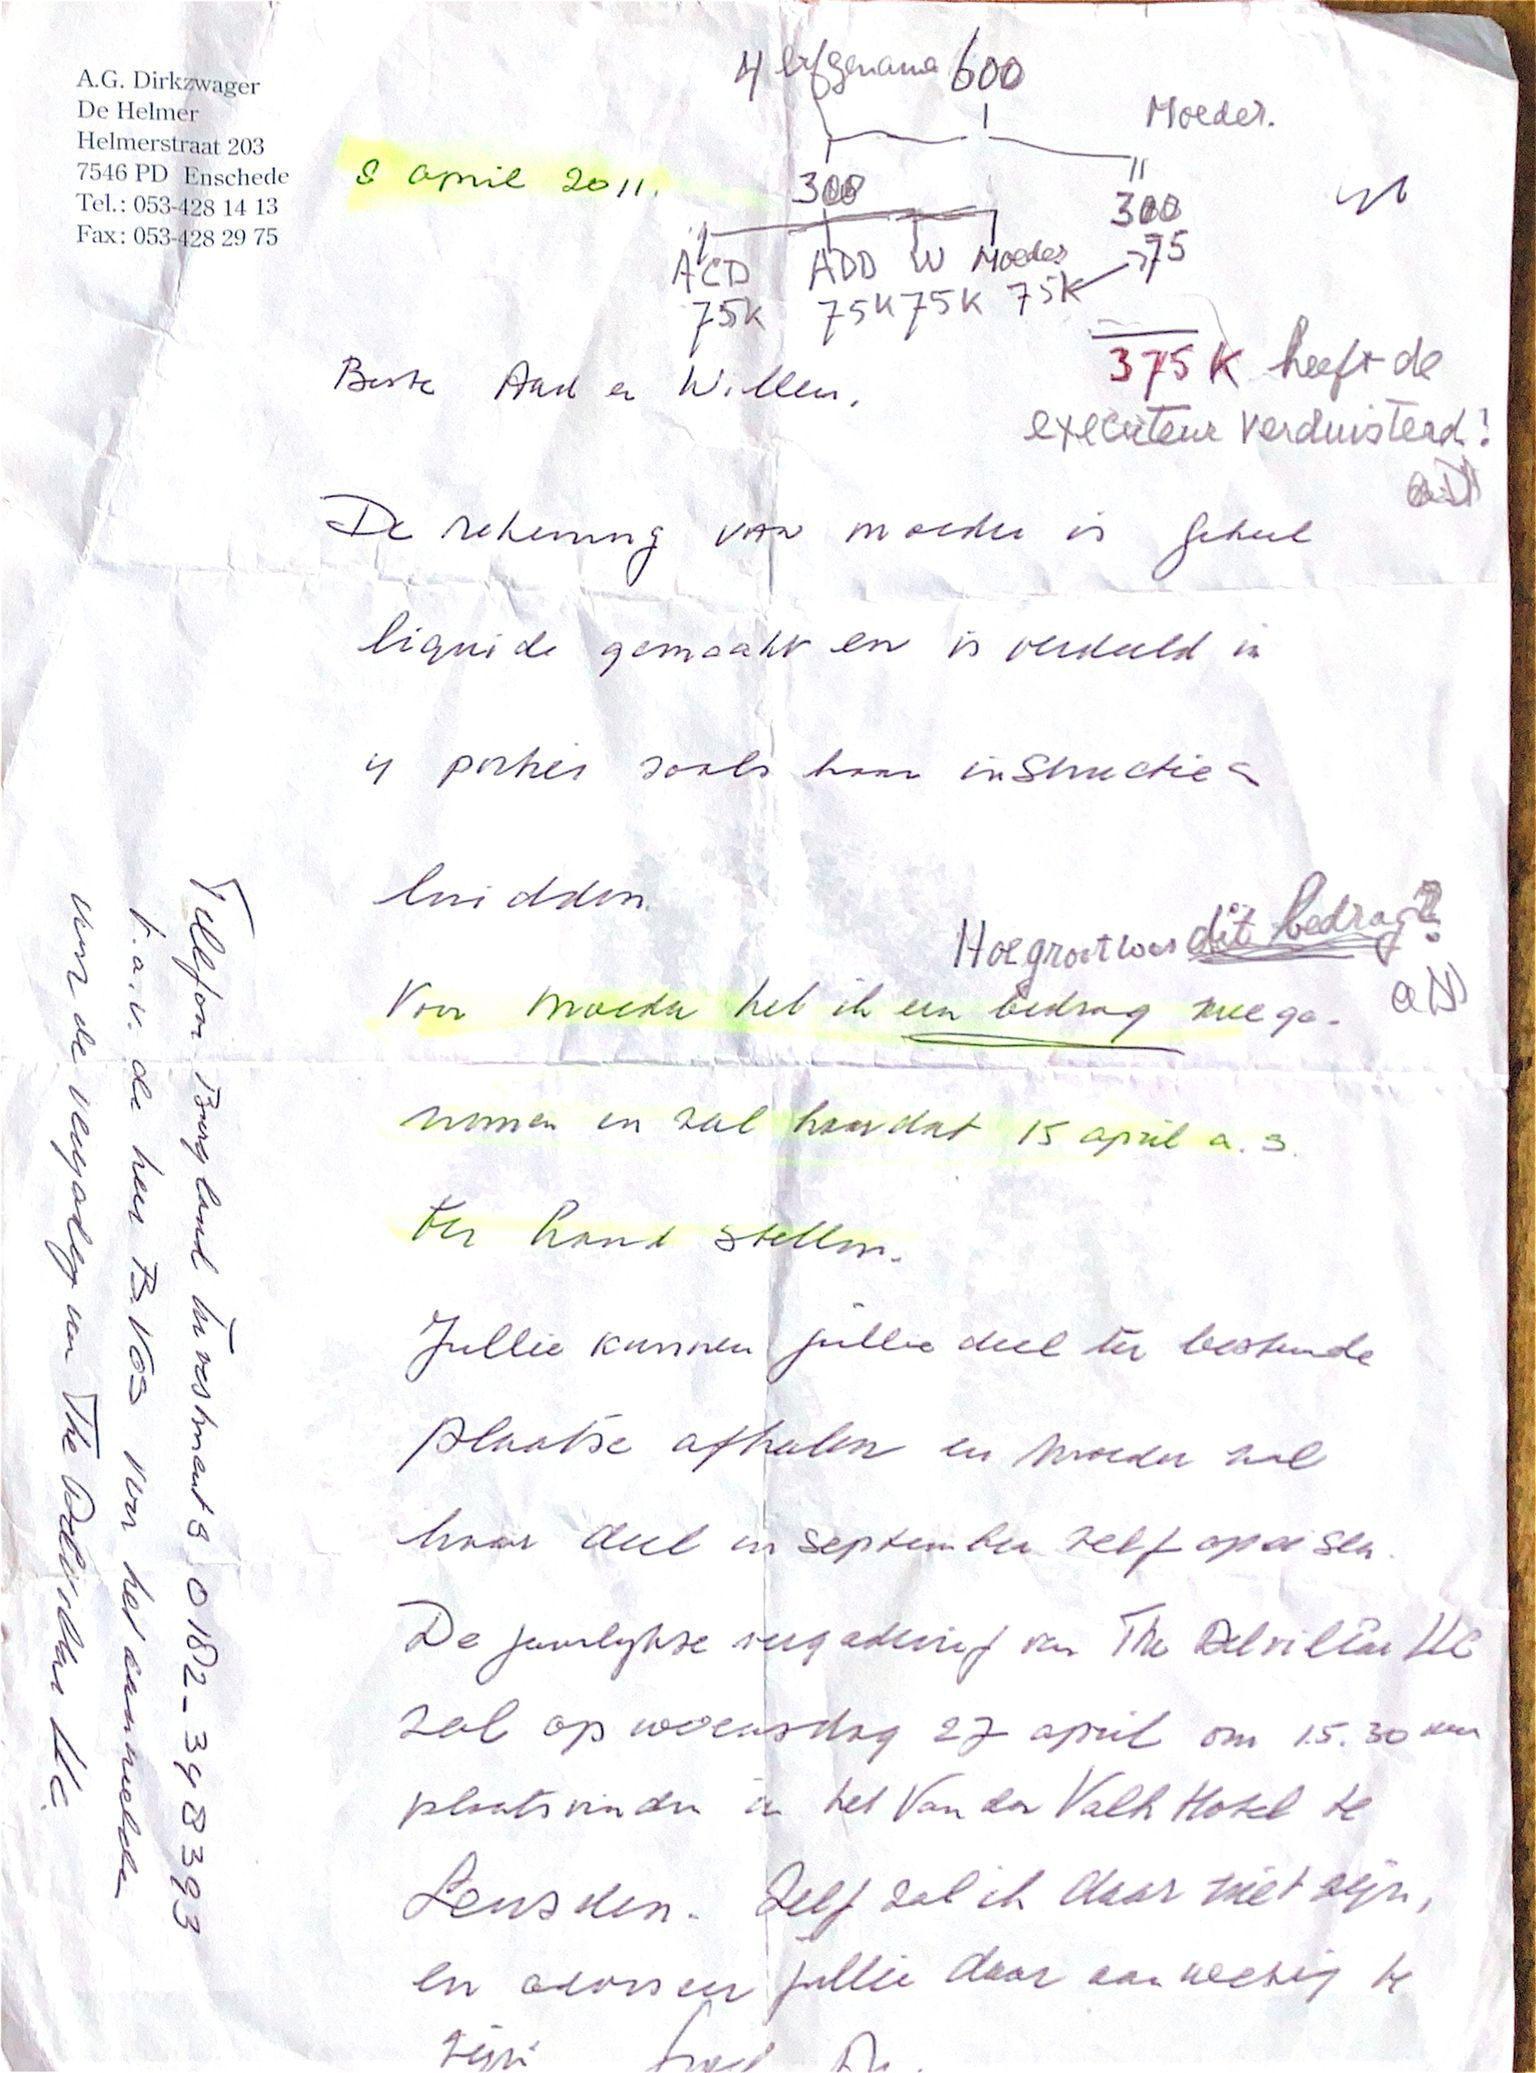 A.G. Dirkzwager
De Helmer
Helmerstraat 203
7546 PD Enschede
Tel.: 053-428 14 13
Fax: 053-428 29 75
4 erfgenama 600
Moeder.
8 april 2011.
300
300
ACD ADD W Moeder
75
75K 75K 75K 75K
375K heeft de
executeur verduisterd!
aD
Beste Aad en Willem,
De rekening van moeder is geheel
liquide gemaakt en is verdeeld in
4 porties zoals haar instructies
luidden.
Hoe groot was dit bedrag?
aD
Voor moeder heb ik een bedrag meege-
nomen en zal haar dat 15 april a.s.
ter hand stellen.
Jullie kunnen jullie deel ter bestemde
plaatse afhalen en moeder zal
haar deel in september zelf opeisen.
De jaarlijkse vergadering van The LLC
zal op woensdag 27 april om 15.30 uur
plaatsvinden in het Van der Valk Hotel te
Leusden. Zelf zal ik daar niet zijn,
en adviseer jullie daar aanwezig te
zijn.
Telefoon Burgland Investments 0182-398393
t.a.v. de heer B. Vos voor het aanmelden
voor de vergadering van The LLC.